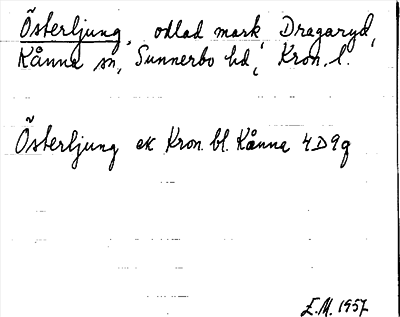 Österljung, odlad mark, Dragaryd,
Kånna sn, Sunnerbo hd, Kron. l.
Österljung ek Kron. bl. Kånna 4D9g
E.M. 1957